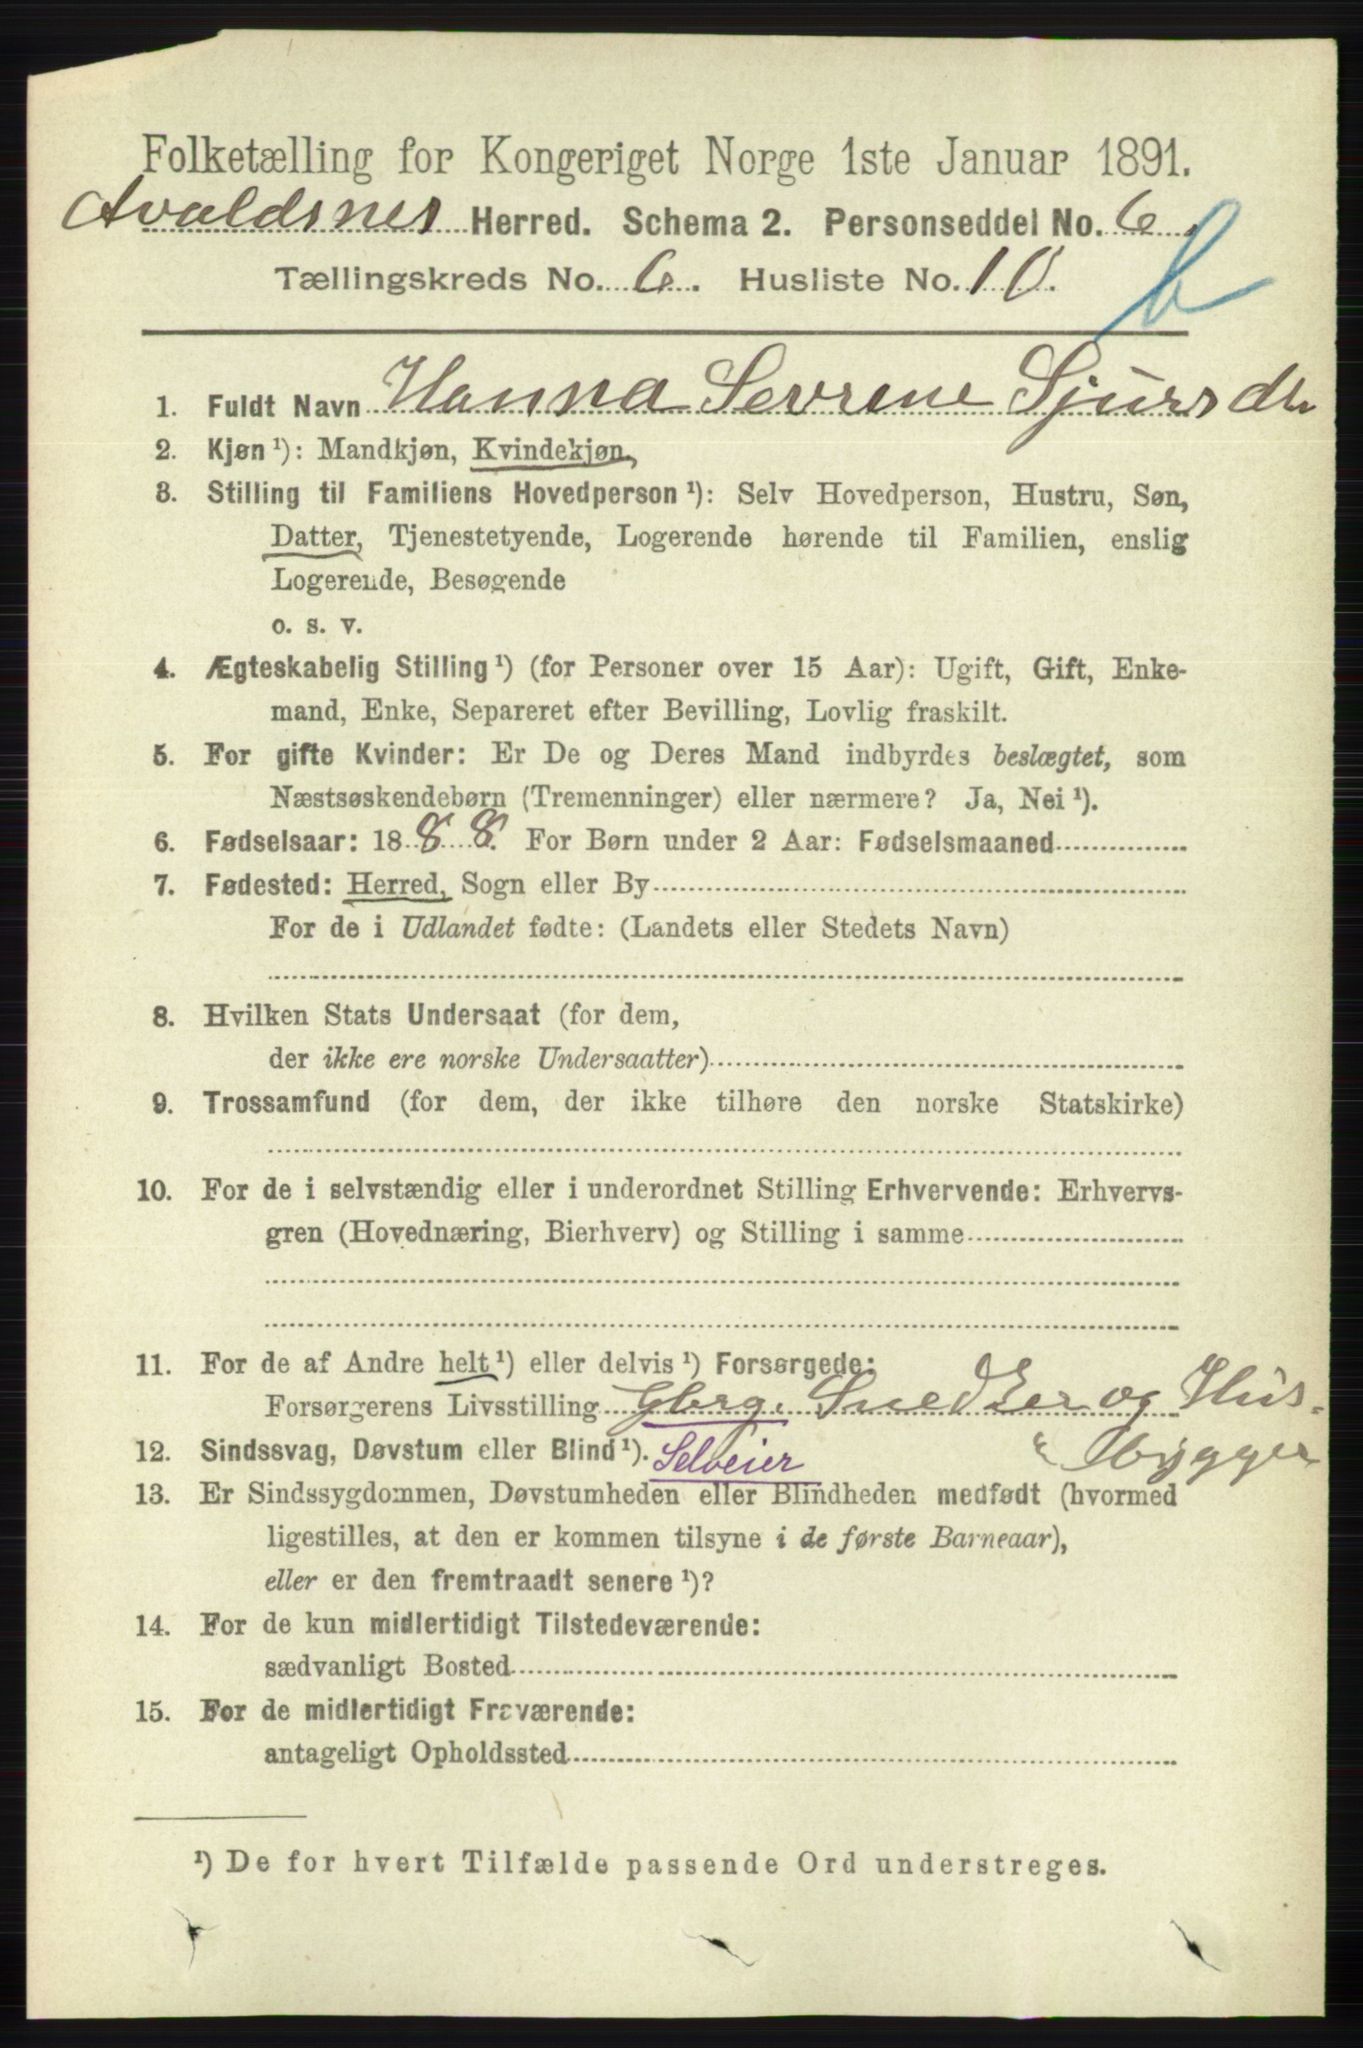 Folketælling for Kongeriget Norge 1ste Januar 1891.
Avaldsnes Herred. Schema 2. Personseddel No. 6.
Tællingskreds No. 6. Husliste No. 10.
b
1. Fuldt Navn Hanna Sevrene Sjursdtr
2. Kjøn ¹): Mandkjøn, Kvindekjøn,
3. Stilling til Familiens Hovedperson ¹): Selv Hovedperson, Hustru, Søn,
Datter, Tjenestetyende, Logerende hørende til Familien, enslig
Logerende, Besøgende
o. s. v.
4. Ægteskabelig Stilling ¹) (for Personer over 15 Aar): Ugift, Gift, Enke-
mand, Enke, Separeret efter Bevilling, Lovlig fraskilt.
5. For gifte Kvinder: Er De og Deres Mand indbyrdes beslægtet, som
Næstsøskendebørn (Tremenninger) eller nærmere? Ja, Nei ¹).
6. Fødselsaar: 1888. For Børn under 2 Aar: Fødselsmaaned
7. Fødested: Herred, Sogn eller By
For de i Udlandet fødte: (Landets eller Stedets Navn)
8. Hvilken Stats Undersaat (for dem,
der ikke ere norske Undersaatter)
9. Trossamfund (for dem, der ikke tilhøre den norske Statskirke)
10. For de i selvstændig eller i underordnet Stilling Erhvervende: Erhvervs-
gren (Hovednæring, Bierhverv) og Stilling i samme
11. For de af Andre helt ¹) eller delvis ¹) Forsørgede:
Forsørgerens Livsstilling Gbrg. Snedker og Hus-
12. Sindssvag, Døvstum eller Blind ¹). Selveier bygger
13. Er Sindssygdommen, Døvstumheden eller Blindheden medfødt (hvormed
ligestilles, at den er kommen tilsyne i de første Barneaar),
eller er den fremtraadt senere ¹)?
14. For de kun midlertidigt Tilstedeværende:
sædvanligt Bosted
15. For de midlertidigt Fraværende:
antageligt Opholdssted
¹) De for hvert Tilfælde passende Ord understreges.